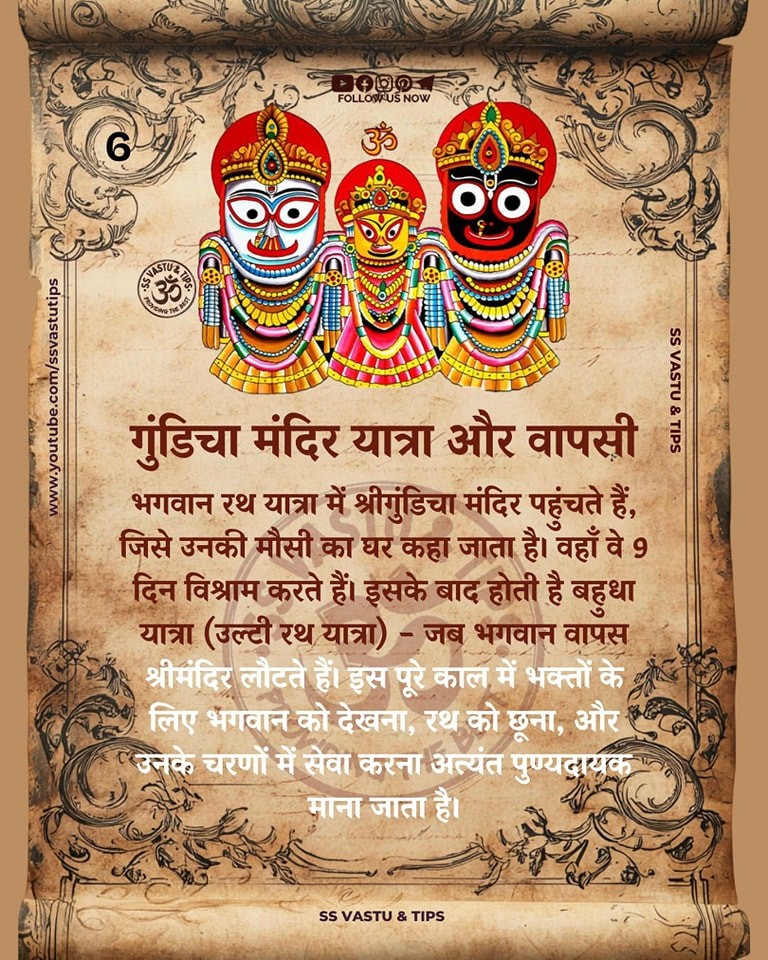 FOLLOW US NOW
6
ॐ
SS VASTU & TIPS
ॐ
PROVIDING THE BEST
www.youtube.com/ssvastutips
SS VASTU & TIPS
गुंडिचा मंदिर यात्रा और वापसी
भगवान रथ यात्रा में श्रीगुंडिचा मंदिर पहुंचते हैं,
जिसे उनकी मौसी का घर कहा जाता है। वहाँ वे 9
दिन विश्राम करते हैं। इसके बाद होती है बहुधा
यात्रा (उल्टी रथ यात्रा) – जब भगवान वापस
श्रीमंदिर लौटते हैं। इस पूरे काल में भक्तों के
लिए भगवान को देखना, रथ को छूना, और
उनके चरणों में सेवा करना अत्यंत पुण्यदायक
माना जाता है।
SS VASTU & TIPS